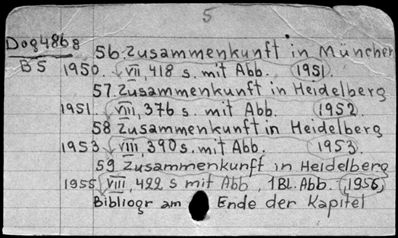 5
Dog4868
B5
56. Zusammenkunft in München
1950. VII, 418 s. mit Abb. (1951.
57. Zusammenkunft in Heidelberg
1951. VIII, 376 s. mit Abb. (1952.
58 Zusammenkunft in Heidelberg
1953 VIII, 390 s. mit Abb. (1953.
59 Zusammenkunft in Heidelberg
1955 VIII, 422 s mit Abb, 1 Bl. Abb. (1956
Bibliogr am Ende der Kapitel